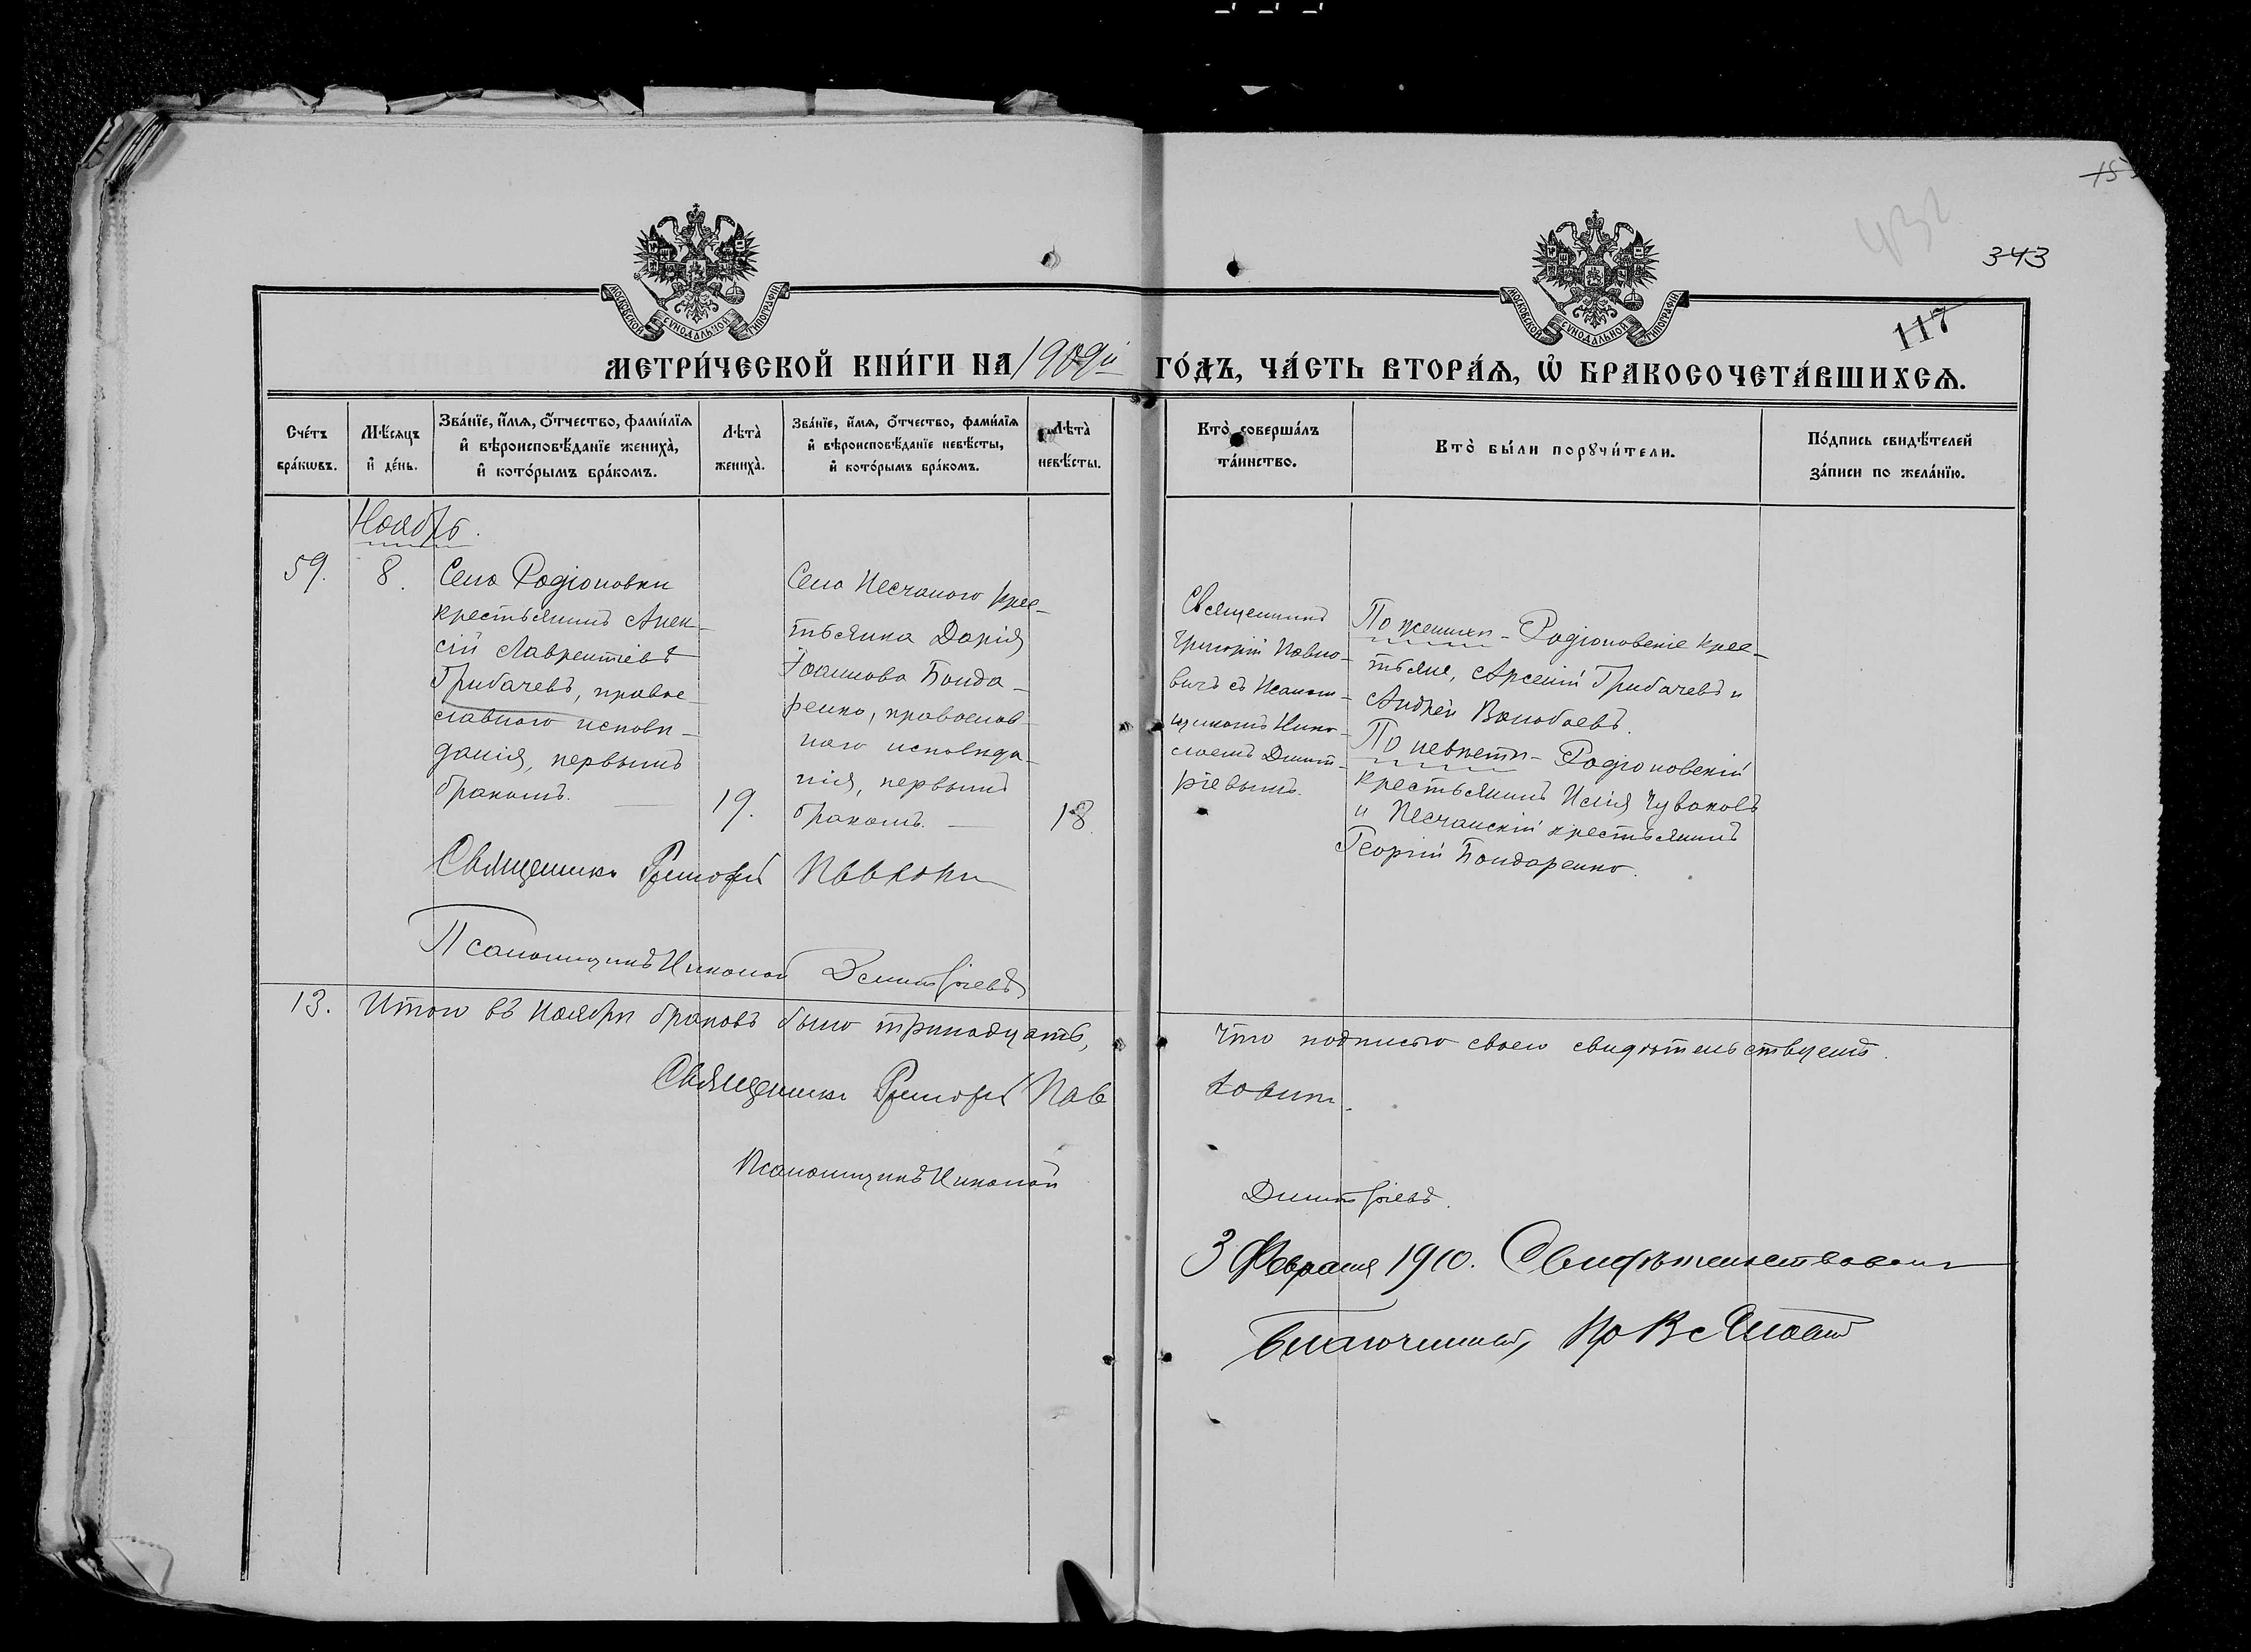 343
117
МОСКОВСКОЙ СУНОДАЛЬНОЙ ТИПОГРАФІИ
МОСКОВСКОЙ СУНОДАЛЬНОЙ ТИПОГРАФІИ
МЕТРИ́ЧЕСКОЙ КНИ́ГИ НА 1909й ГО́ДЪ, ЧА́СТЬ ВТОРА́Ѧ, Ѽ БРАКОСОЧЕТА́ВШИХСѦ.
Сче́тъ бра́кѡвъ.
Мѣ́сяцъ и҆ де́нь.
Зва́нїе, и҆́мѧ, ѻ҆́тчество, фами́лїѧ
и҆ вѣроисповѣ́данїе жениха̀,
и҆ кото́рымъ бра́комъ.
Лѣта̀ жениха̀.
Зва́нїе, и҆́мѧ, ѻ҆́тчество, фами́лїѧ
и҆ вѣроисповѣ́данїе невѣ́сты,
и҆ кото́рымъ бра́комъ.
Лѣта̀ невѣ́сты.
Кто̀ соверша́лъ
та́инство.
Кто̀ бы́ли порꙋчи́тели.
По́дпись свидѣ́телей
за́писи по жела́нїю.
Ноябрь.
59.
8.
Села Родіоновки
крестьянинъ Алек-
сій Лаврентіевъ
Грибачевъ, право-
славнаго исповѣ-
данія, первымъ
бракомъ.
19.
Села Песчаного крес-
тьянка Дарія
Іоаннова Бонда-
ренко, православ-
наго исповѣда-
нія, первымъ
бракомъ.
18.
Священникъ
Григорій Павло-
вичъ съ Псалом-
щикомъ Нико-
лаемъ Димит-
ріевымъ.
По женихѣ - Родіоновскіе крес-
тьяне, Арсеній Грибачевъ и
Андрей Воловаевъ.
По невѣстѣ - Родіоновскій
крестьянинъ Илія Чуваковъ
и Песчанскій крестьянинъ
Георгій Бондаренко.
Священникъ Григорій
Псаломщикъ Николай Димитріевъ
13. Итого въ Ноябрѣ браковъ было тринадцать,
Что подписью своею свидѣтельствуемъ.
Священникъ Григорій Пав
Псаломщикъ Николай
Димитріевъ.
3 Февраля 1910. Свидѣтельствовалъ
Благочинный,